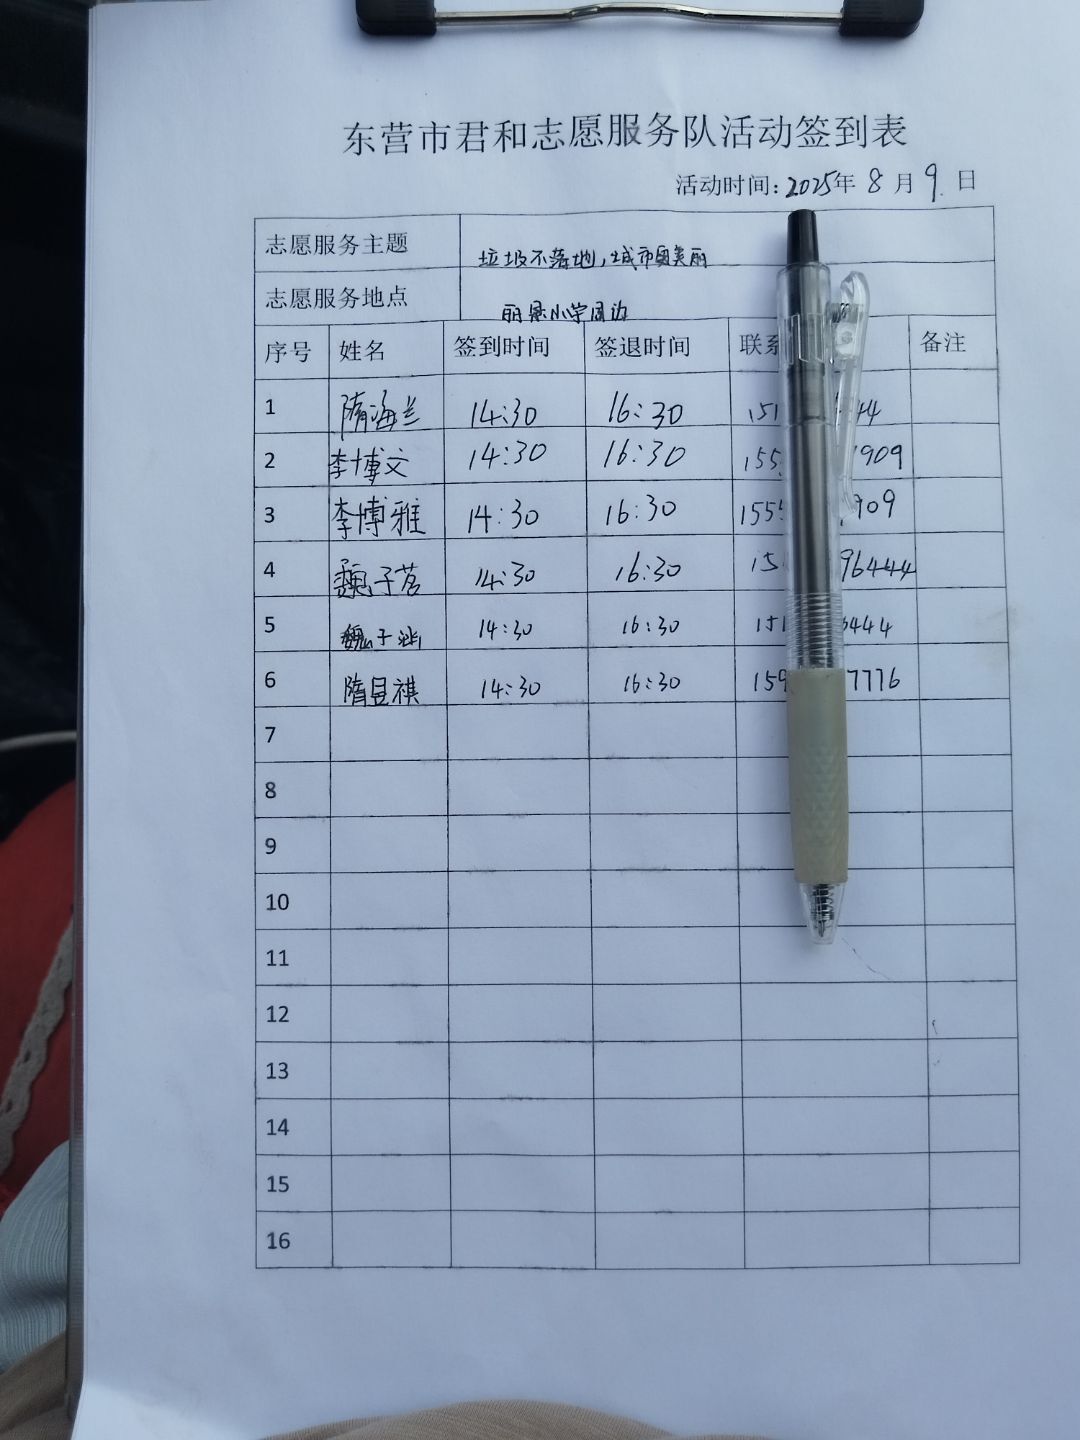 东营市君和志愿服务队活动签到表
活动时间:2025年 8 月 9 日
志愿服务主题 垃圾不落地,城市更美丽
志愿服务地点 丽景小学周边
序号 姓名 签到时间 签退时间 联系 备注
1 隋海兰 14:30 16:30 151 44
2 李博文 14:30 16:30 155 1909
3 李博雅 14:30 16:30 155 909
4 魏子茗 14:30 16:30 15 96444
5 魏子涵 14:30 16:30 151 6444
6 隋昱祺 14:30 16:30 159 7776
7
8
9
10
11
12
13
14
15
16